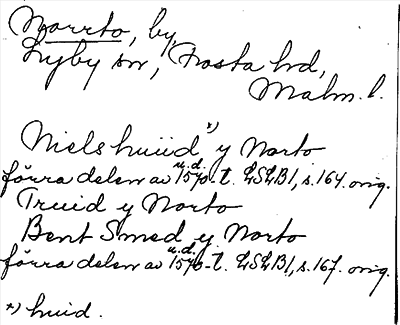 Norrto, by,
Lyby sn, Frosta hd,
Malm. l.
Niels huiid *) y Norto
förra delen av 1570-t. u.d. LSLB1, s. 164. orig.
Truid y Norto
Bent Smed y Norto
förra delen av 1570-t. u.d. LSLB1, s. 167. orig.
*) huid.